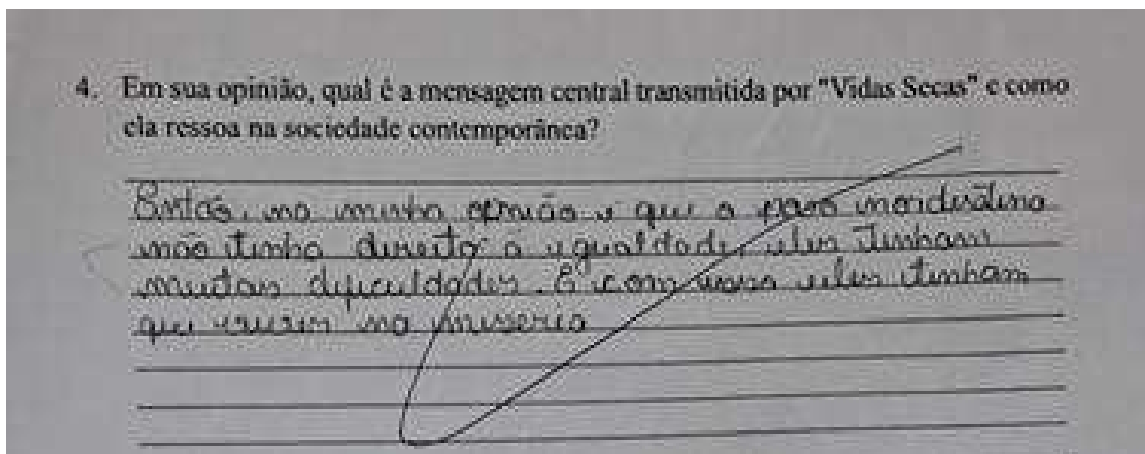 4. Em sua opinião, qual é a mensagem central transmitida por "Vidas Secas" e como
ela ressoa na sociedade contemporânea?
Então, na minha opinião e que o povo nordestino
não tinha direito a igualdade, eles tinham
muitas dificuldades. E com eles tinham
que na miseria